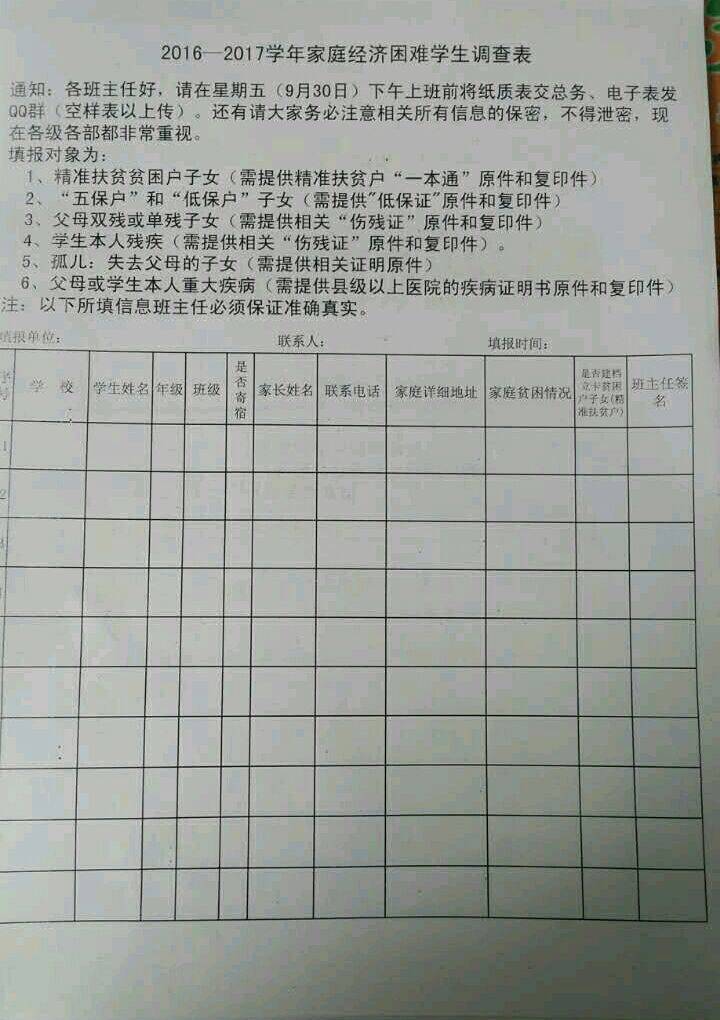 2016—2017学年家庭经济困难学生调查表
通知：各班主任好，请在星期五（9月30日）下午上班前将纸质表交总务、电子表发
QQ群（空样表以上传）。还有请大家务必注意相关所有信息的保密，不得泄密，现
在各级各部都非常重视。
填报对象为：
1、精准扶贫贫困户子女（需提供精准扶贫户“一本通”原件和复印件）
2、“五保户”和“低保户”子女（需提供"低保证"原件和复印件）
3、父母双残或单残子女（需提供相关“伤残证”原件和复印件）
4、学生本人残疾（需提供相关“伤残证”原件和复印件）。
5、孤儿：失去父母的子女（需提供相关证明原件）
6、父母或学生本人重大疾病（需提供县级以上医院的疾病证明书原件和复印件）
注：以下所填信息班主任必须保证准确真实。
填报单位： 联系人： 填报时间：
序号 学 校 学生姓名 年级 班级 是否寄宿 家长姓名 联系电话 家庭详细地址 家庭贫困情况 是否建档立卡贫困户子女(精准扶贫户) 班主任签名
1
2